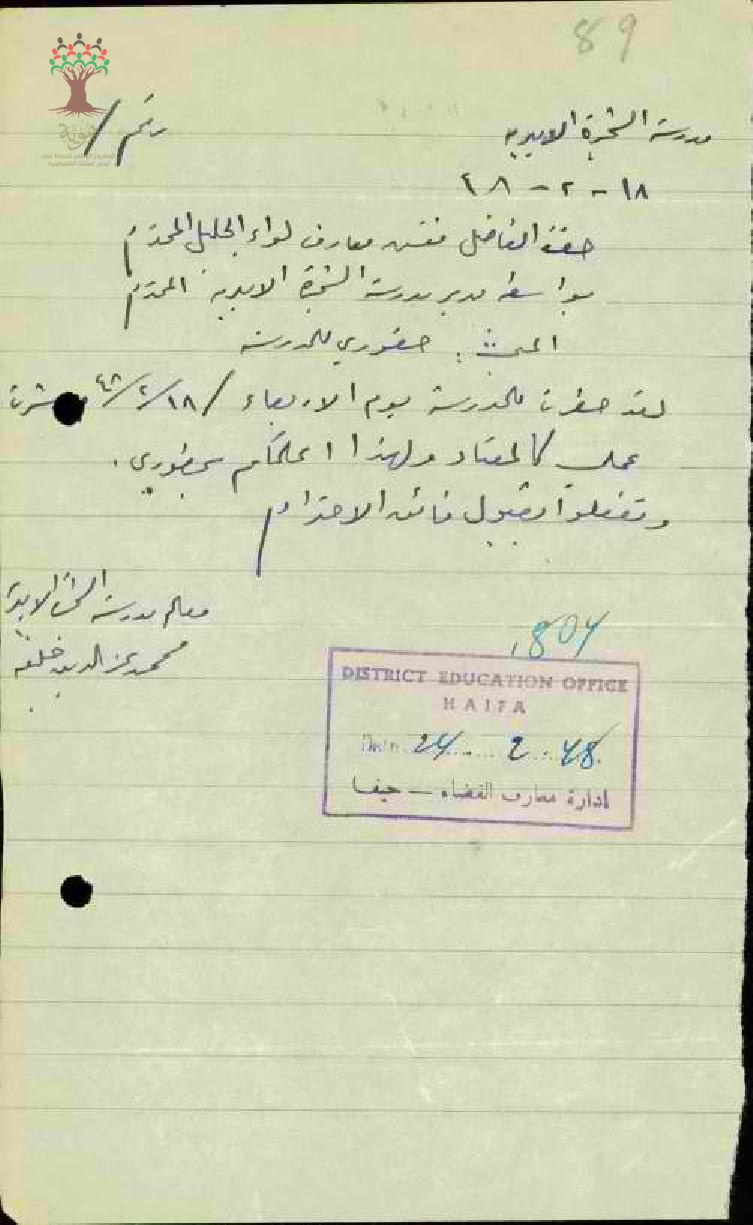 89
رقم /
مدرسة الشجرة الاميرية
١٨ - ٢ - ٤٨
حضرة الفاضل مفتش معارف لواء الجليل المحترم
بواسطة مدير مدرسة الشجرة الاميرية المحترم
المبحث : حضوري للمدرسة
لقد حضرت للمدرسة يوم الاربعاء ١٨/٢/٤٨ وباشرت
عملي كالمعتاد ولهذا اعلمكم بحضوري .
وتفضلوا بقبول فائق الاحترام
معلم مدرسة الشجرة الاميرية
محمد عز الدين خليفه
1804
DISTRICT EDUCATION OFFICE
HAIFA
Date 24 2 48
ادارة معارف القضاء — حيفا
هوية